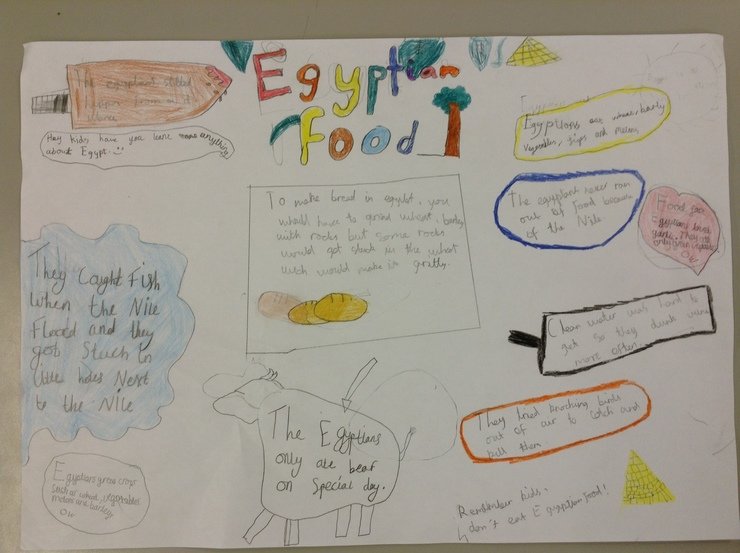 Egyptian
Food
Hey kids have you learn more anything
about Egypt. :)
Egyptians eat wheat, barly
vegetables, figs and melons
The egyptians never ran
out of food because
of the Nile
only grown
To make bread in egypt, you
whould have to grind wheat, barley
with rocks but some rocks
whould get stuck in the what
wich would make it gritty.
They Caught Fish
When the Nile
Flood and they
got Stuck In
little holes Next
to the Nile
Clean water was hard to
get so they drunk wine
more often
The Egyptians
only ate beaf
on Special day.
They tried knocking birds
out of air to catch and
kill them
Egyptians grew crops
such as wheat, vegetables
melons and barley
Remember kids,
don't eat Egyptian food!